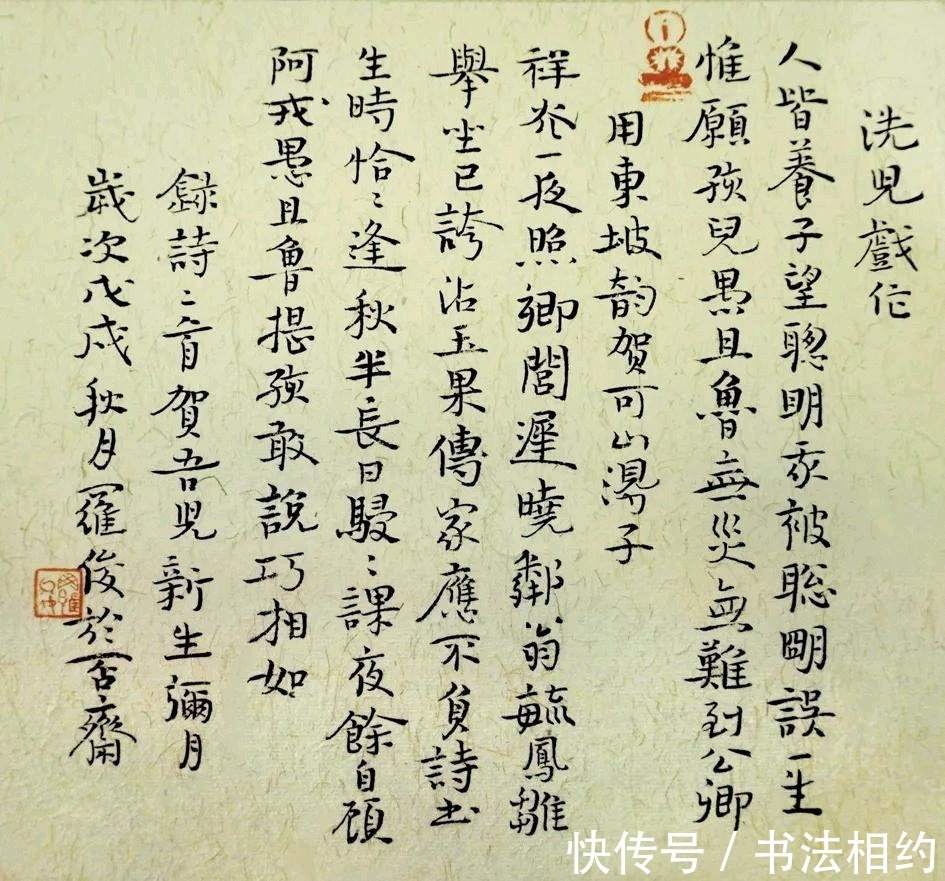 洗兒戲作
人皆養子望聰明我被聰明誤一生
惟願孩兒愚且魯無災無難到公卿
用東坡韵賀可山湯子
祥光一夜照卿閭遲曉鄰翁毓鳳雛
舉坐已誇沾玉果傳家應不負詩書
生時恰〻逢秋半長日駸〻課夜餘自顧
阿戎愚且魯提孩敢說巧相如
錄詩二首賀吾兒新生彌月
歲次戊戌秋月羅俊於一否齋
快传号 / 书法相约